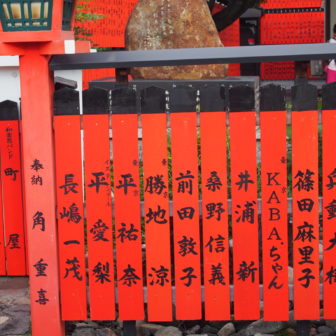 篠田麻里子
KABA.ちゃん
井浦新
桑野信義
前田敦子
勝地涼
平祐奈
平愛梨
長嶋一茂
奉納 角重喜
和楽器バンド
町屋